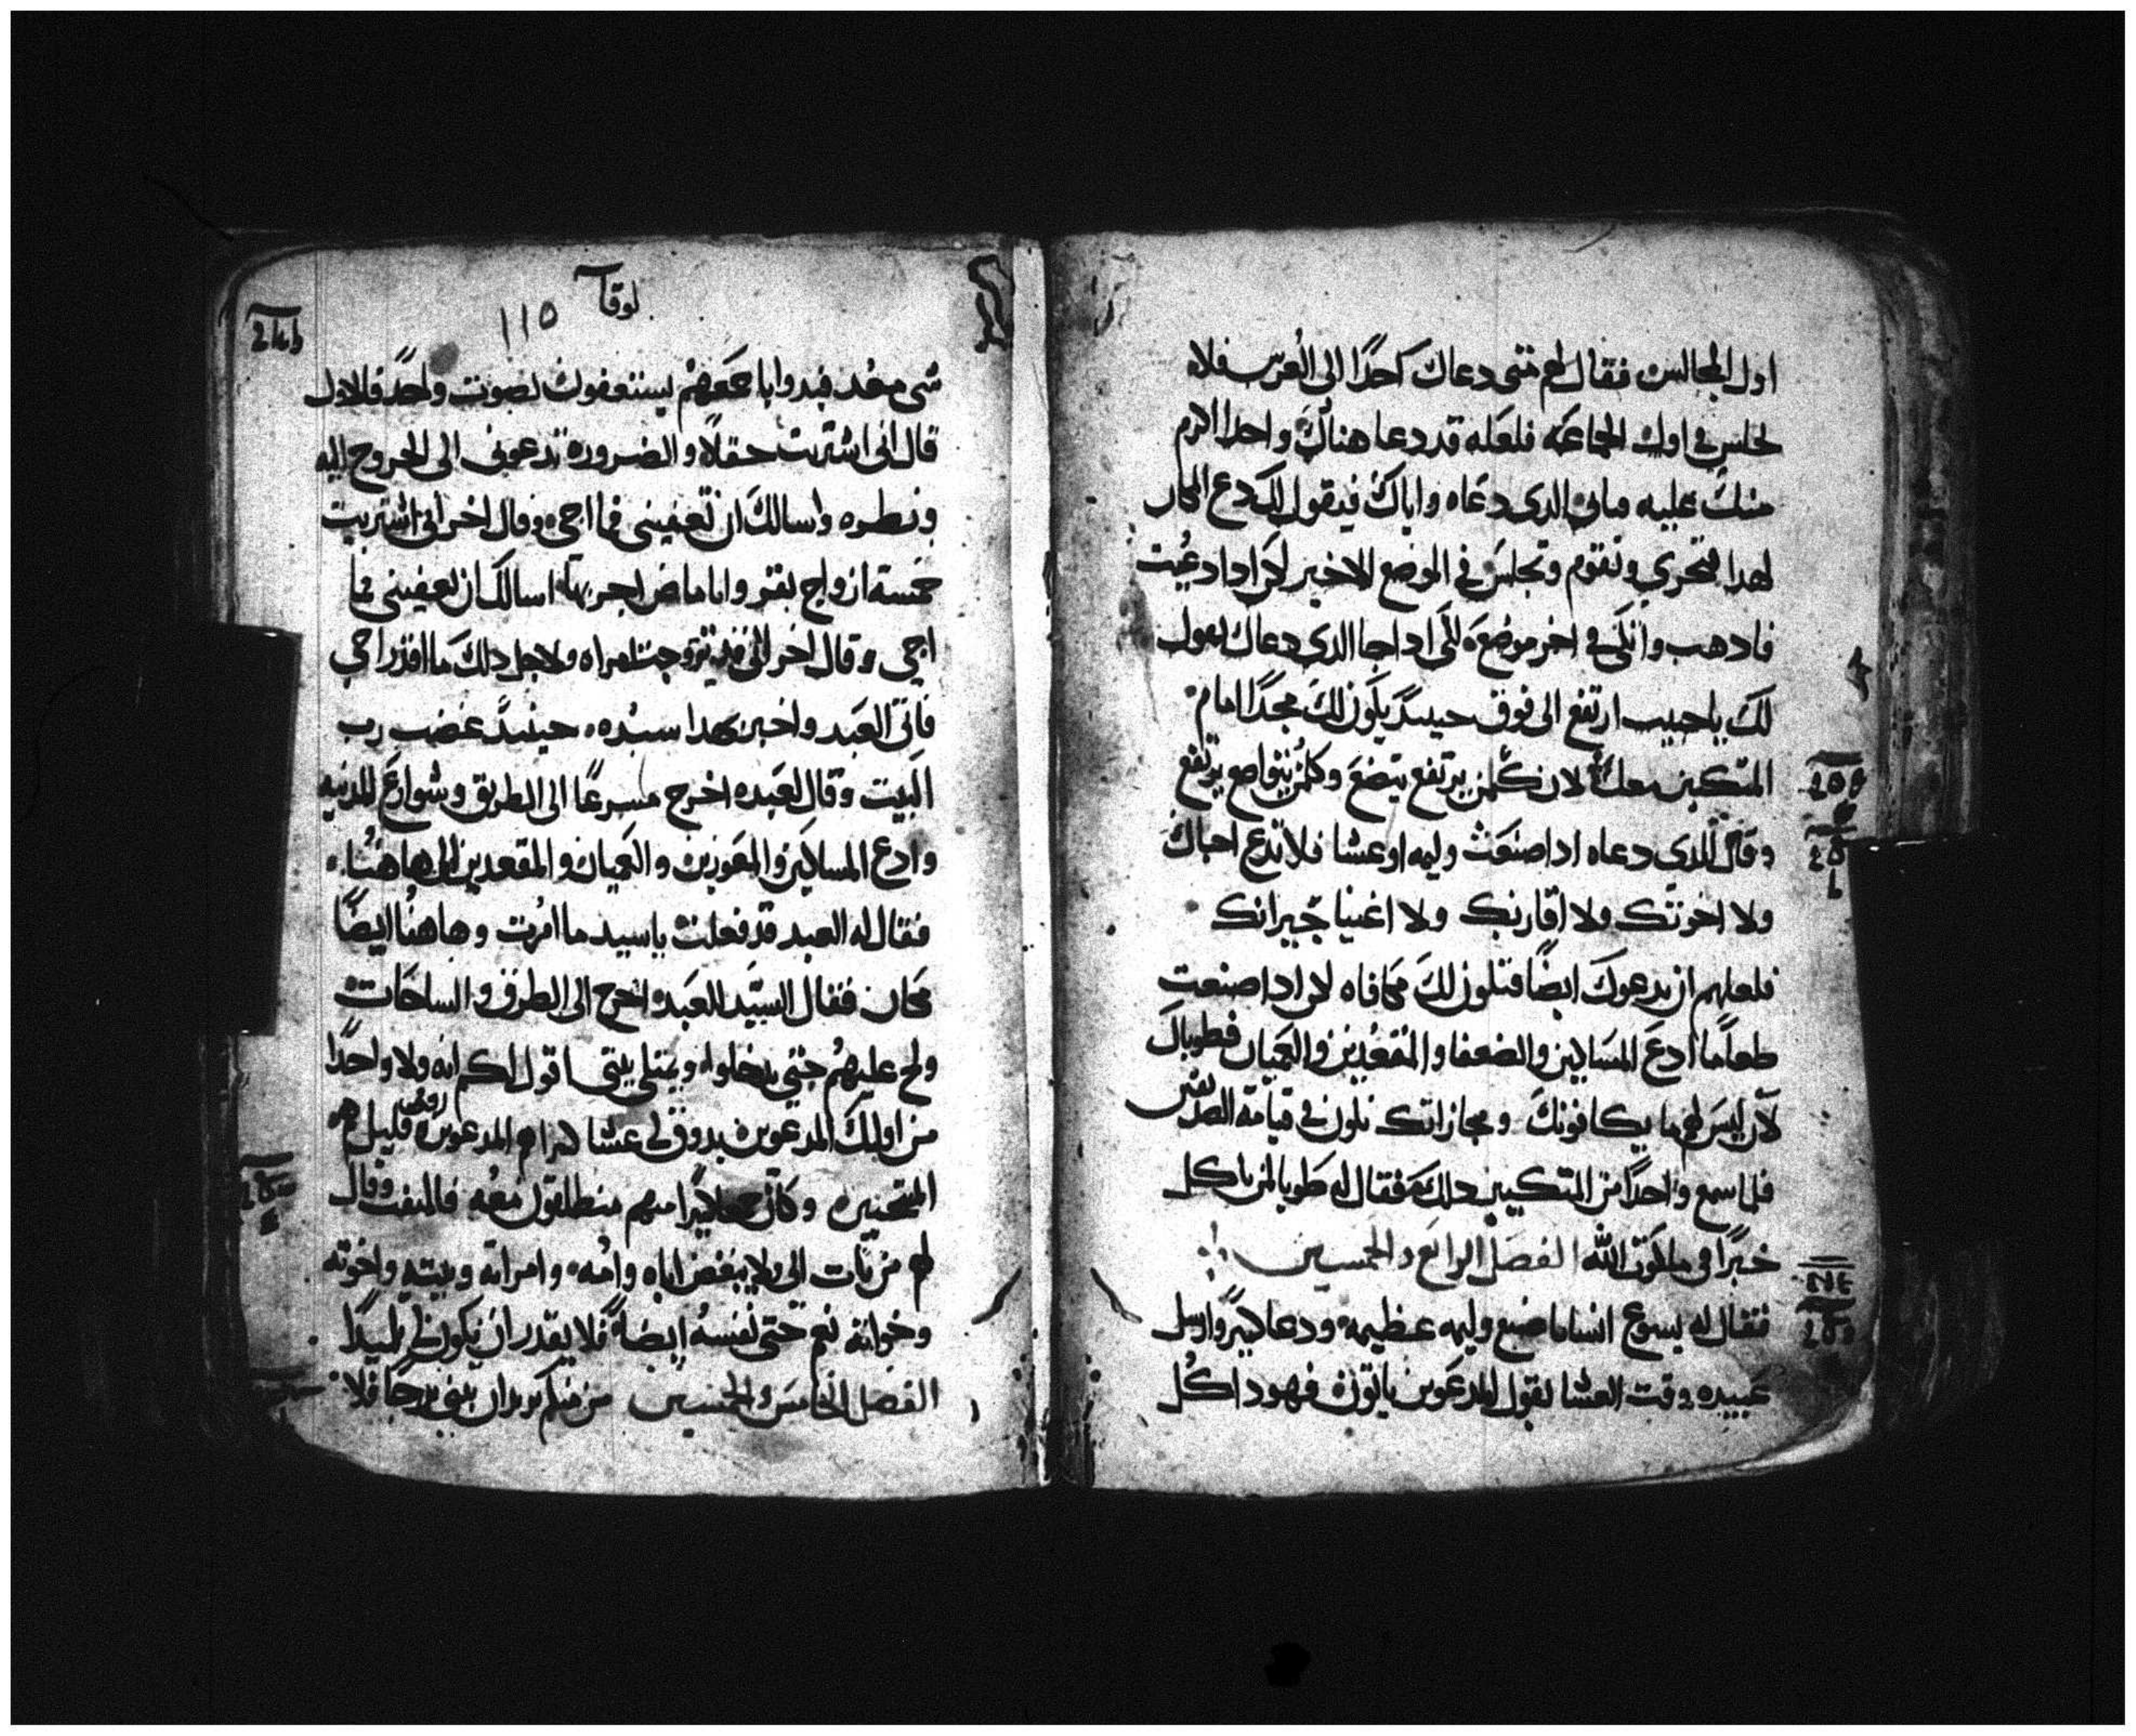 اول المجالس فقال لهم متى دعاك احدًا الى العرس فلا
تجلس في اول الجماعه فلعله قد دعا هناك واحدا اكرم
منك عليه فياتي الدي دعاه واياك فيقول لك دع المكان
لهدا فتخزي وتقوم وتجلس في الموضع الاخير لكن ادا دعيت
فادهب واتكي في اخر موضع لكي ادا جا الدي دعاك يقول
لك يا حبيب ارتفع الى فوق حينيدٍ يكون لك مجدًا امام
المتكيين معك لان كلمن يرتفع يتضع وكلمن يتواضع يرتفع
وقال للدي دعاه ادا صنعت وليمه او عشا فلا تدع احباك
ولا اخوتك ولا اقاربك ولا اغنيا جيرانك
فلعلهم ان يدعوك ايضًا فتكون لك مكافاه لكن ادا صنعت
طعامًا ادع المساكين والضعفا والمقعدين والعميان فطوباك
لان ليس لهم ما يكافونك ومجازاتك تكون في قيامة الصديقين
فلما سمع واحدًا من المتكيين دلك فقال له طوبا لمن ياكل
خبزًا في ملكوت الله الفصل الرابع والخمسين
فقال له يسوع انسانا صنع وليمه عظيمه ودعا كثيرًا وارسل
عبيده وقت العشا يقول للمدعوين ياتون فهودا كل
لوقا
١١٥
شي معد فبدوا باجمعهم يستعفون بصوت واحدٍ فالاول
قال اني اشتريت حقلًا والضروره تدعوني الى الخروج اليه
ونطره واسالك ان تعفيني فما اجي وقال اخر اني اشتريت
خمسة ازواج بقر وانا ماض اجربها اسالك ان تعفيني فما
اجي وقال اخر اني قد تزوجت امراه ولاجل دلك ما اقدر اجي
فاتى العبد واخبر بهدا سيده حينيدٍ غضب رب
البيت وقال لعبده اخرج مسرعًا الى الطريق وشوارع المدنيه
وادع المساكين والمعوزين والعميان والمقعدين الى هاهنا
فقال له العبد قد فعلت يا سيد ما امرت وهاهنا ايضًا
مكان فقال السيد للعبده اخرج الى الطرق والساحات
ولح عليهم حتى يدخلوا ويمتلي بيتي اقول لكم انه ولا واحدًا
من اوليك المدعوين يدوق لي عشا المدعوين قليل هم
المنتخبين وكان كثيرًا منهم منطلقون معه فالتفت وقال
لهم من يات الي ولا يبغض اباه وامه وامراته وبيته واخوته
وخواته نعم حتى نفسه ايضًا فلا يقدر ان يكون لي تلميدًا
الفصل الخامس والخمسين من منكم يريد ان يبني برجًا فلا